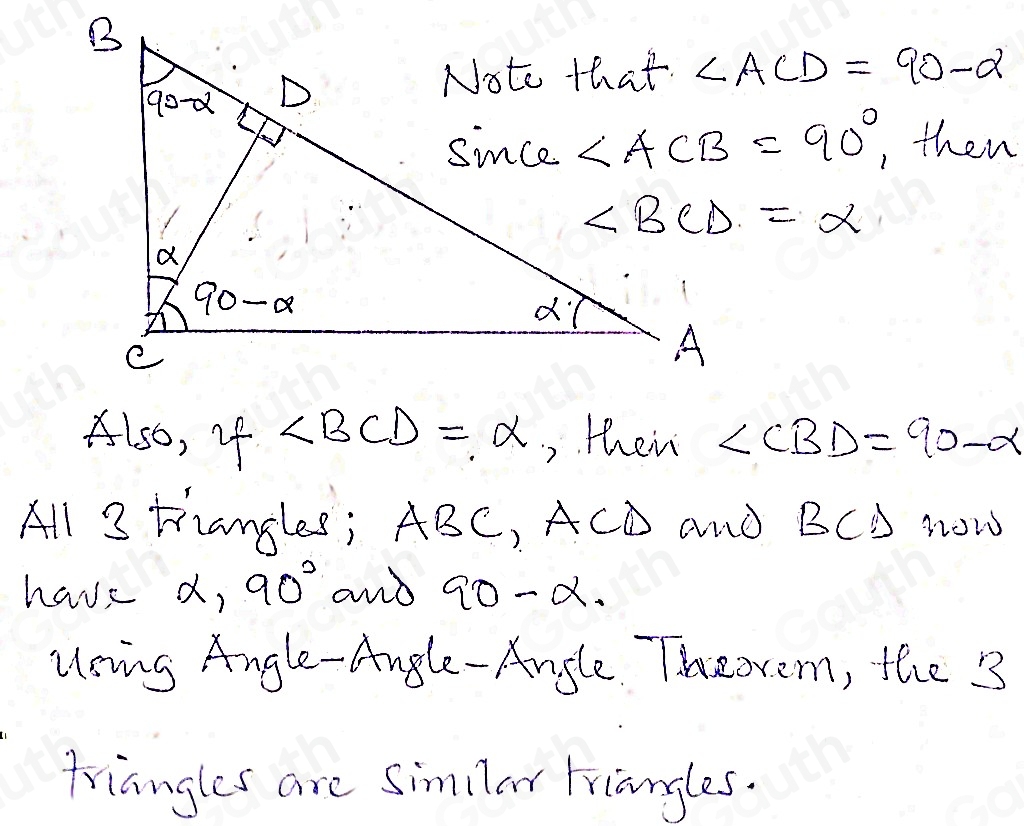 B
D
90-α
Note that ∠ACD = 90-α
since ∠ACB = 90°, then
∠BCD = α
α
90-α
α
C
A
Also, if ∠BCD = α, then ∠CBD = 90-α
All 3 triangles; ABC, ACD and BCD now
have α, 90° and 90-α.
Using Angle-Angle-Angle Theorem, the 3
triangles are similar triangles.